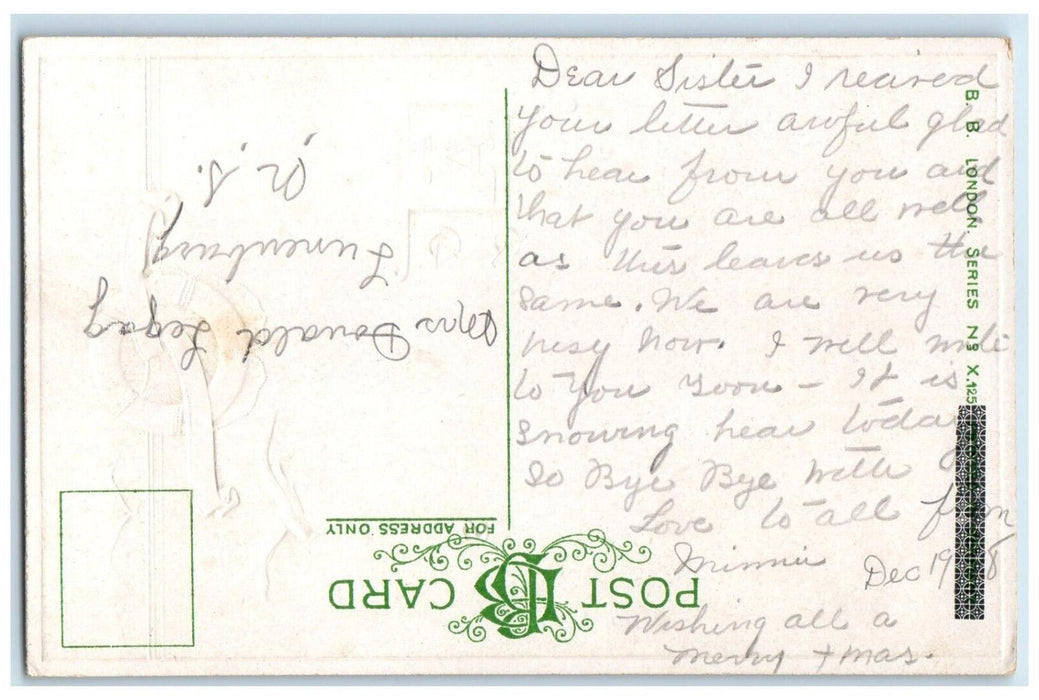 Dear Sister I recived
your letter awful glad
to hear from you and
that you are all well
as this leaves us the
same. We are very
busy now. I will write
to you soon – It is
snowing hear today
so Bye Bye with
Love to all from
Minnie
Dec 19
Wishing all a
merry Xmas.
POST CARD
FOR ADDRESS ONLY
Mrs Donald
Lunenburg
N. S.
B. B. LONDON. SERIES Nº X.125